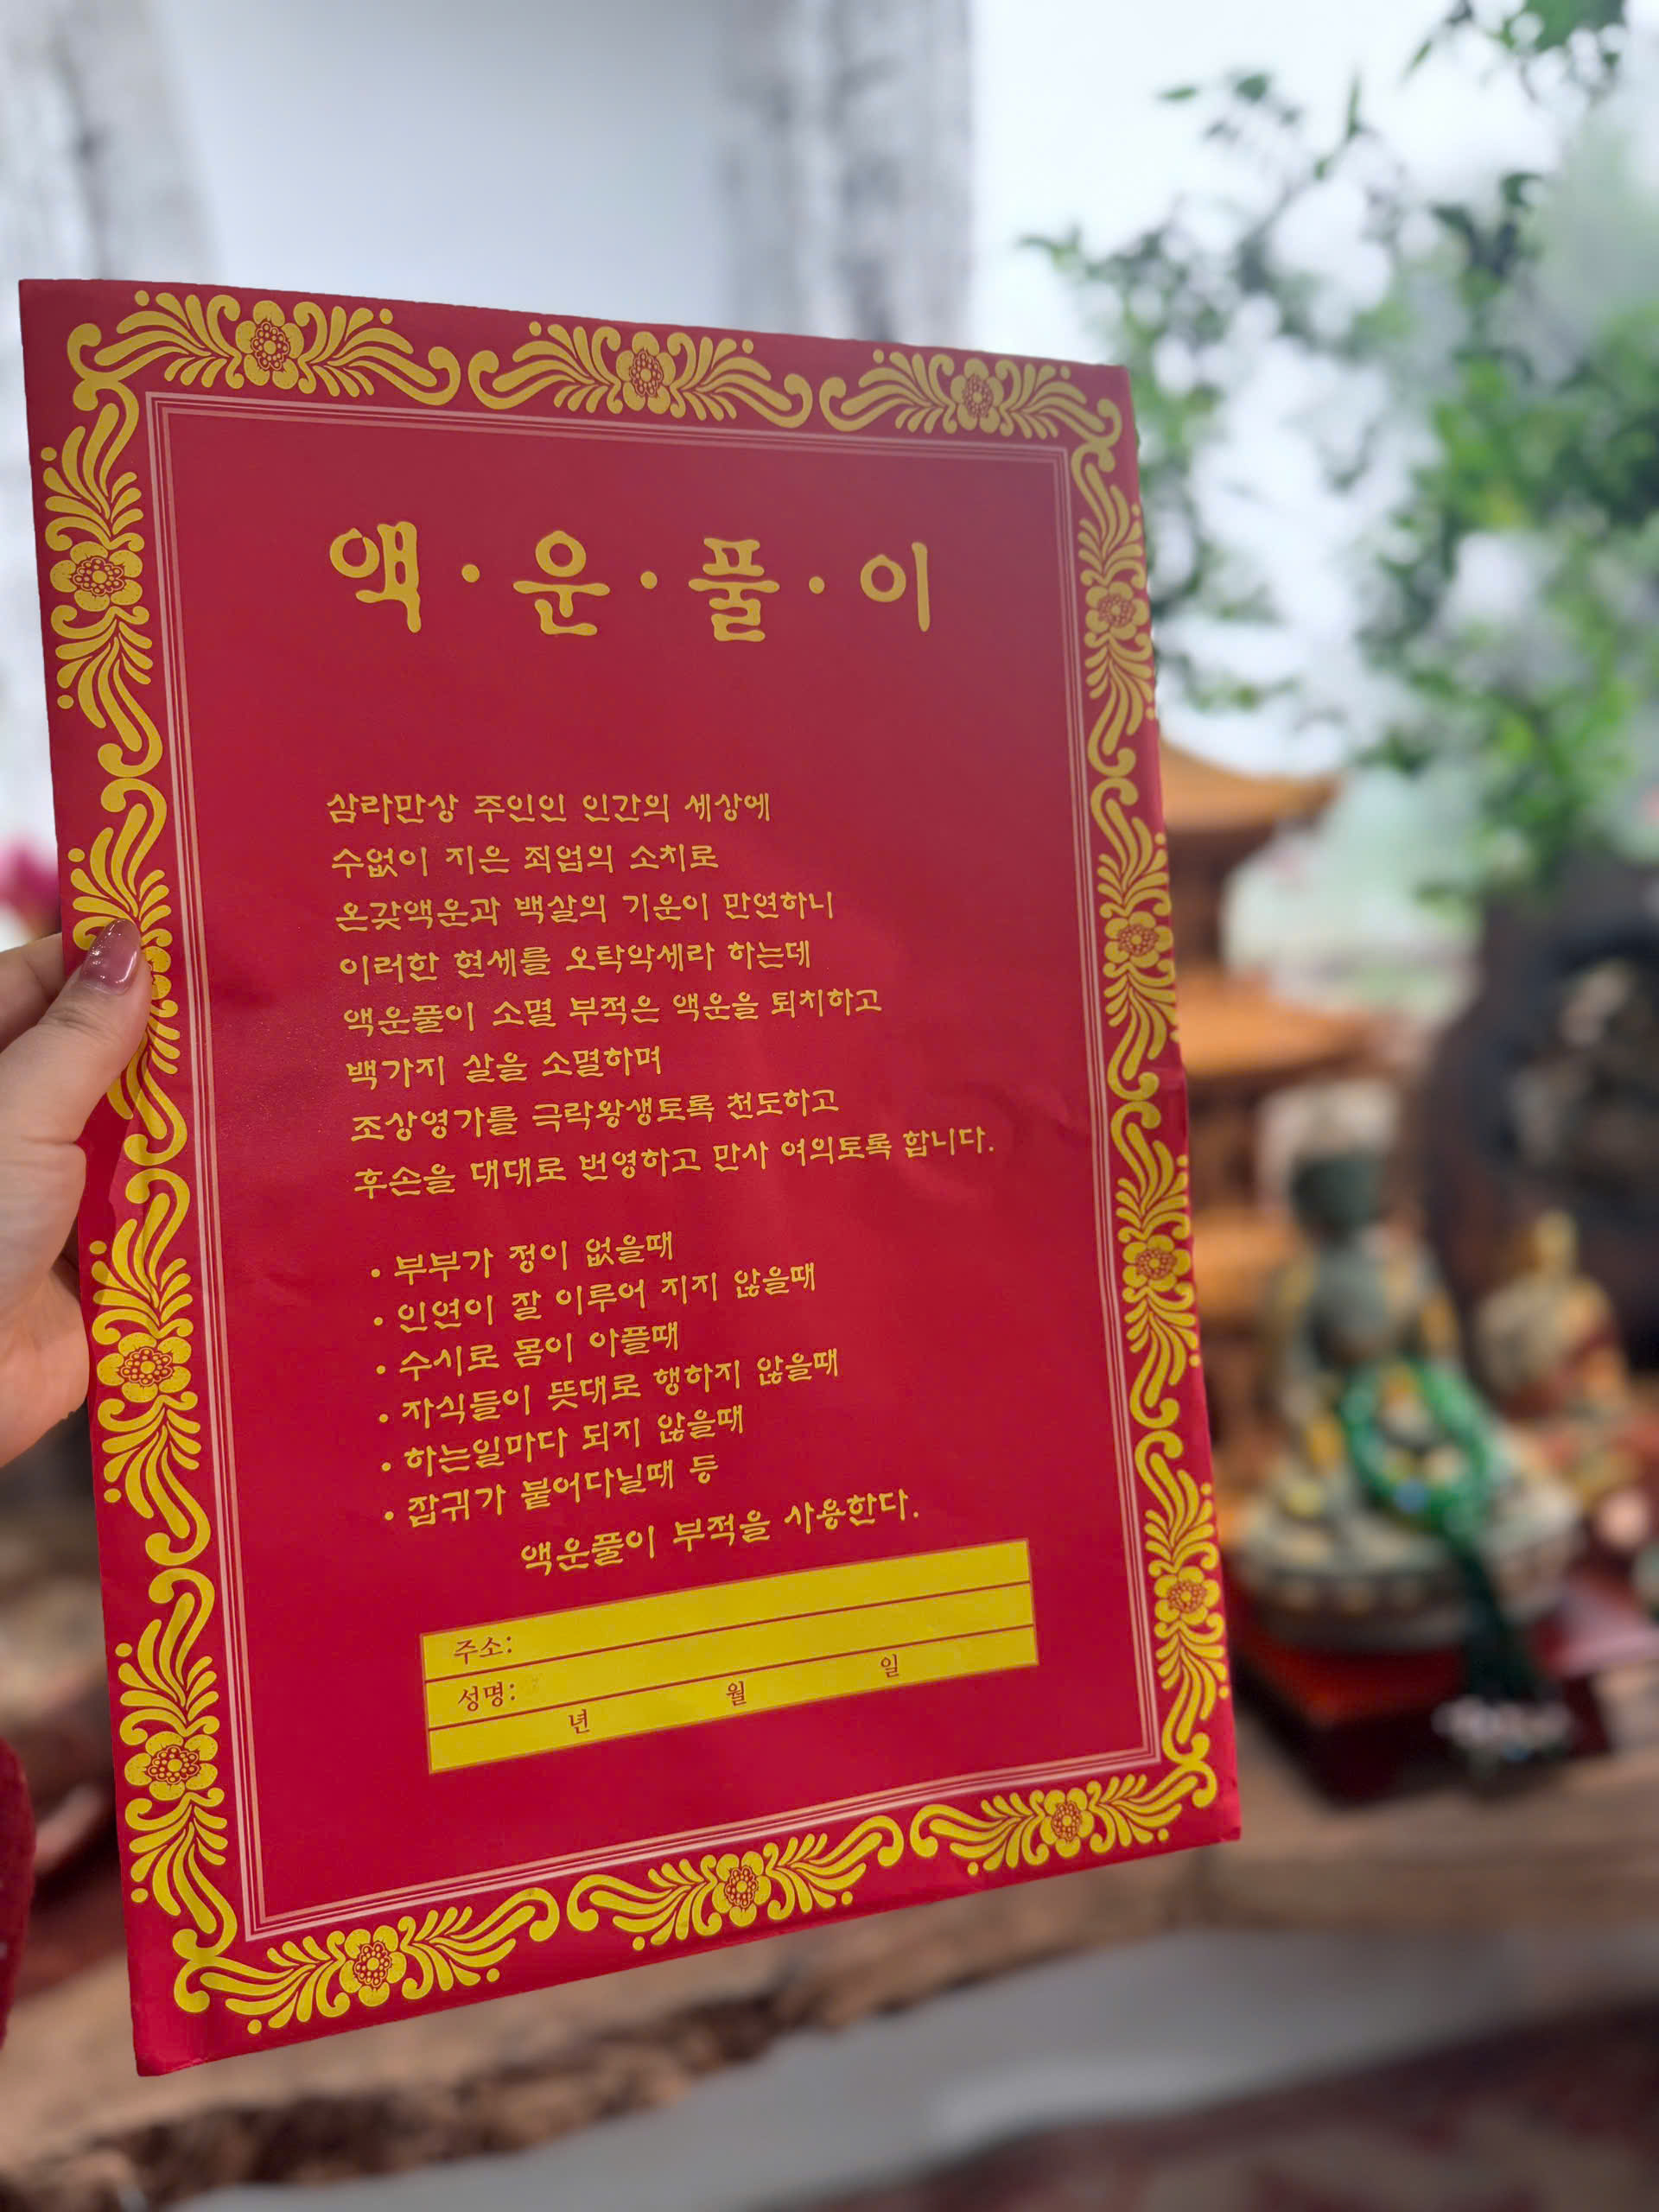 액·운·풀·이
삼라만상 주인인 인간의 세상에
수없이 지은 죄업의 소치로
온갖액운과 백살의 기운이 만연하니
이러한 현세를 오탁악세라 하는데
액운풀이 소멸 부적은 액운을 퇴치하고
백가지 살을 소멸하며
조상영가를 극락왕생토록 천도하고
후손을 대대로 번영하고 만사 여의토록 합니다.
• 부부가 정이 없을때
• 인연이 잘 이루어 지지 않을때
• 수시로 몸이 아플때
• 자식들이 뜻대로 행하지 않을때
• 하는일마다 되지 않을때
• 잡귀가 붙어다닐때 등
액운풀이 부적을 사용한다.
주소:
성명:
년 월 일